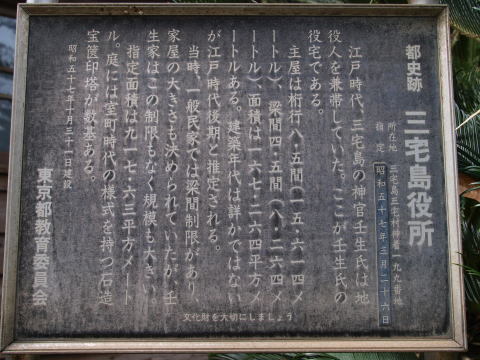 都史跡 三宅島役所
所在地 三宅島三宅村神着一九九番地
指定 昭和五十七年三月二十六日
江戸時代、三宅島の神官壬生氏は地
役人を兼帯していた。ここが壬生氏の
役宅である。
主屋は桁行八・五間(一五・六一四メ
ートル)、梁間四・五間(八・二六四メ
ートル)、面積は一六七・二六四平方メ
ートルある。建築年代は詳かではない
が江戸時代後期と推定される。
当時、一般民家では梁間制限があり
家屋の大きさも決められていたが、壬
生家はこの制限もなく規模も大きい。
指定面積は九一七・六三平方メート
ル。庭には室町時代の様式を持つ石造
宝篋印塔が数基ある。
昭和五十七年十月三十一日建設
東京都教育委員会
文化財を大切にしましょう